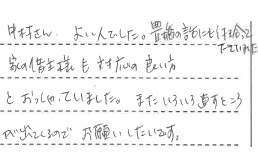 中村さん、よい人でした。豊橋の話にも付き合って
下さいました
家の借主様も対応の良い方
とおっしゃっていました。またいろいろ直すところ
が出てくるのでお願いしたいです。